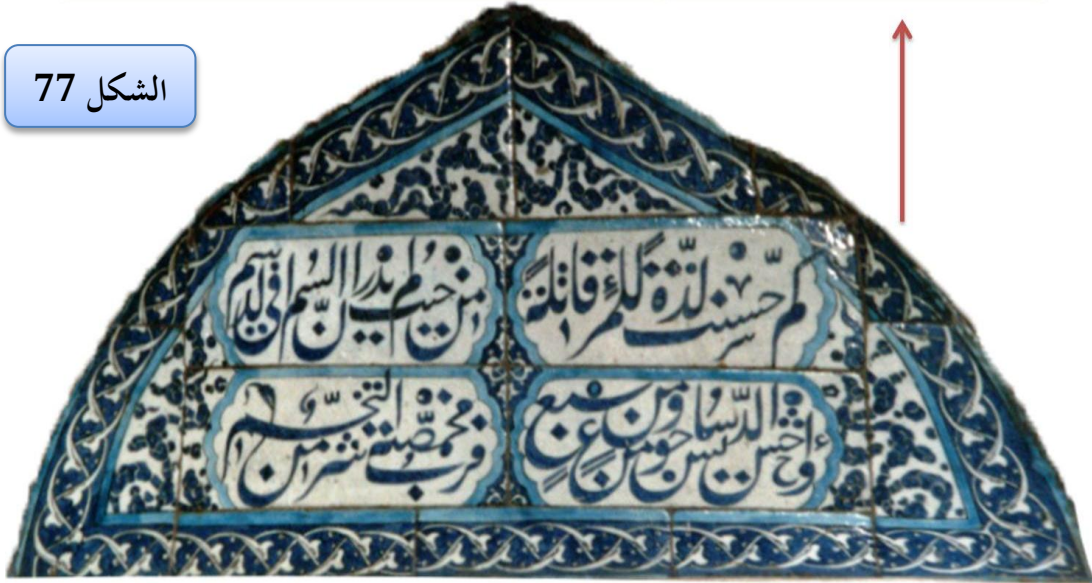 الشكل 77
كم حسّنت لذّة للمرء قاتلة
من حيث لم يدر ان السم في الدسم
واخش الدسائس من جوع ومن شبع
فرب مخمصة شر من التخم